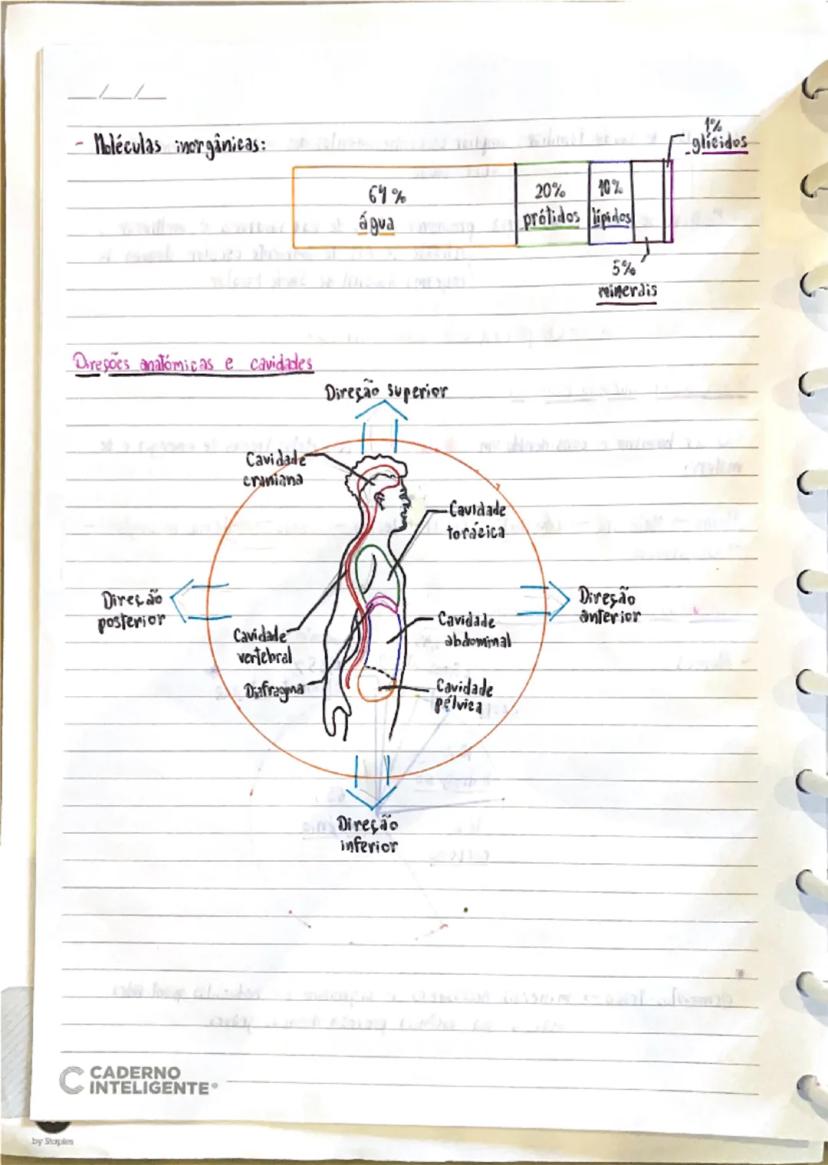 __/__/__
- Moléculas inorgânicas:
1%
glícidos
64%
água
20%
prótidos
10%
lípidos
5%
minerais
Direções anatómicas e cavidades
Direção superior
Cavidade
craniana
Cavidade
torácica
Direção
posterior
Direção
anterior
Cavidade
vertebral
Cavidade
abdominal
Diafragma
Cavidade
pélvica
Direção
inferior
CADERNO
INTELIGENTE®
by Staples